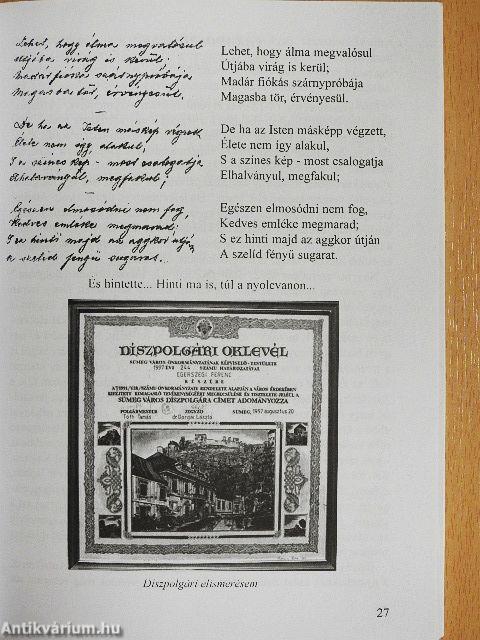 Lehet, hogy álma megvalósul
Útjába virág is kerül;
Madár fiókás szárnypróbája
Magasba tör, érvényesül.
De ha az Isten máskép végzett,
Élete nem így alakul,
S a színes kép - most csalogatja
Elhalványúl, megfakul;
Egészen elmosódni nem fog,
Kedves emléke megmarad;
S ez hinti majd az aggkor útján
A szelíd fényű sugarat.
Lehet, hogy álma megvalósul
Útjába virág is kerül;
Madár fiókás szárnypróbája
Magasba tör, érvényesül.
De ha az Isten másképp végzett,
Élete nem így alakul,
S a színes kép - most csalogatja
Elhalványul, megfakul;
Egészen elmosódni nem fog,
Kedves emléke megmarad;
S ez hinti majd az aggkor útján
A szelíd fényű sugarat.
És hintette... Hinti ma is, túl a nyolcvanon...
DÍSZPOLGÁRI OKLEVÉL
SÜMEG VÁROS ÖNKORMÁNYZATÁNAK KÉPVISELŐ-TESTÜLETE
1997 ÉVI 244 SZÁMÚ HATÁROZATÁVAL
EGERSZEGI FERENC
RÉSZÉRE
SÜMEG VÁROS DÍSZPOLGÁRA CÍMET ADOMÁNYOZZA
POLGÁRMESTER JEGYZŐ SÜMEG, 1997 augusztus 20
Tóth Tamás
Díszpolgári elismerésem
27
Antikvárium.hu